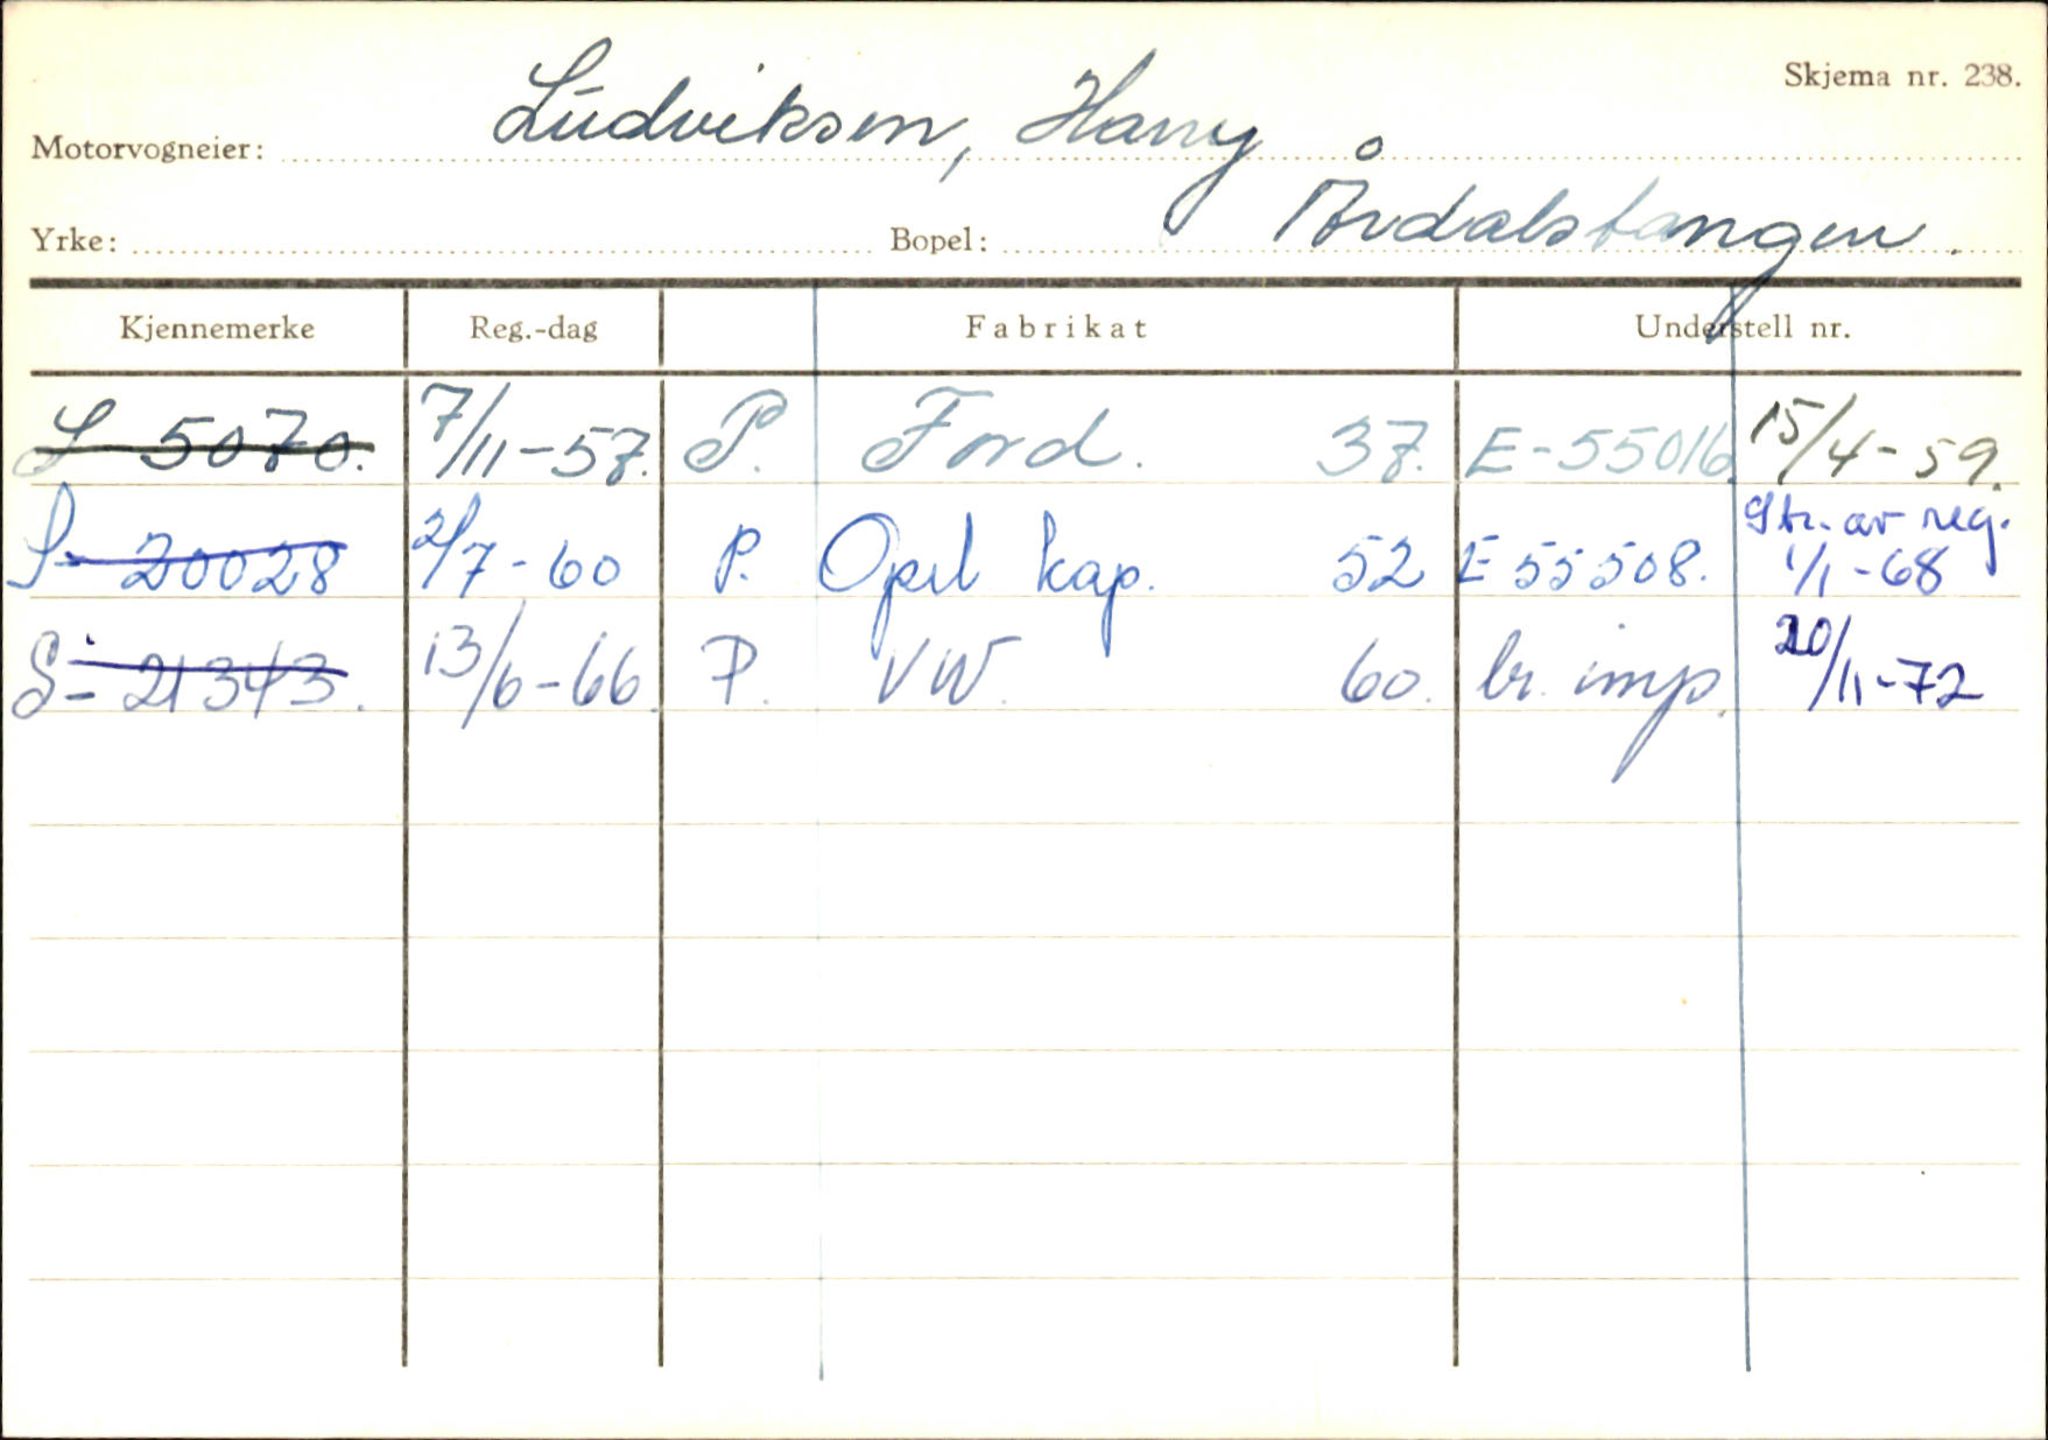 Skjema nr. 238.
Motorvogneier: Ludviksen, Harry
Yrke: Bopel: Årdalstangen.
Kjennemerke Reg.-dag Fabrikat Understell nr.
S 5070. 7/11-57. P. Ford. 37. E-55016. 15/4-59.
S- 20028 2/7-60 P. Opel kap. 52 E 55508. Str. av reg. 1/1-68
S- 21343. 13/6-66. P. VW. 60. br. imp. 20/11-72